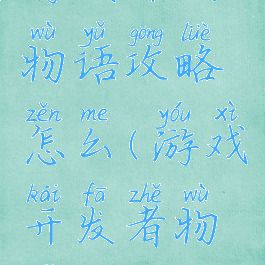 wù yǔ gōng lüè
物语攻略
zěn me yóu xì
怎么(游戏
kāi fā zhě wù
开发者物